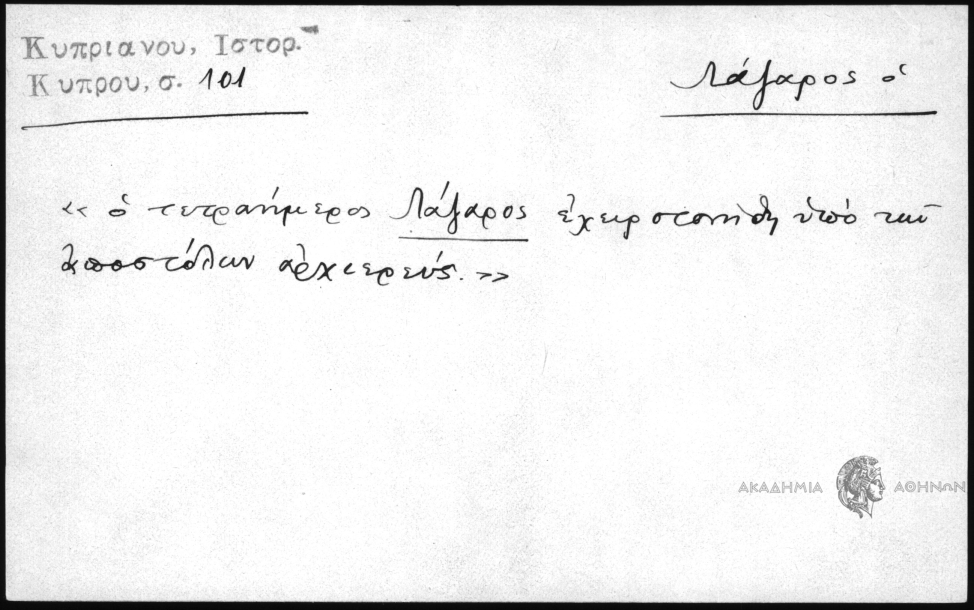 Κυπριανου, Ιστορ.
Κυπρου, σ. 101
Λάζαρος ὁ
« ὁ τετραήμερος Λάζαρος ἐχειροτονήθη ὑπό τῶν
ἀποστόλων ἀρχιερεύς. »
ΑΚΑΔΗΜΙΑ ΑΘΗΝΩΝ